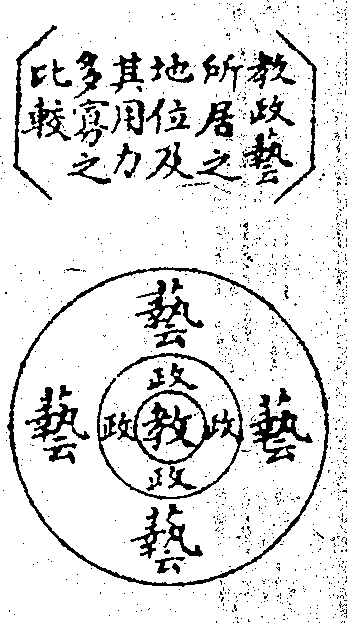 教政藝
所居之
地位及
其用力
多寡之
比較
藝
政
藝政教政藝
政
藝